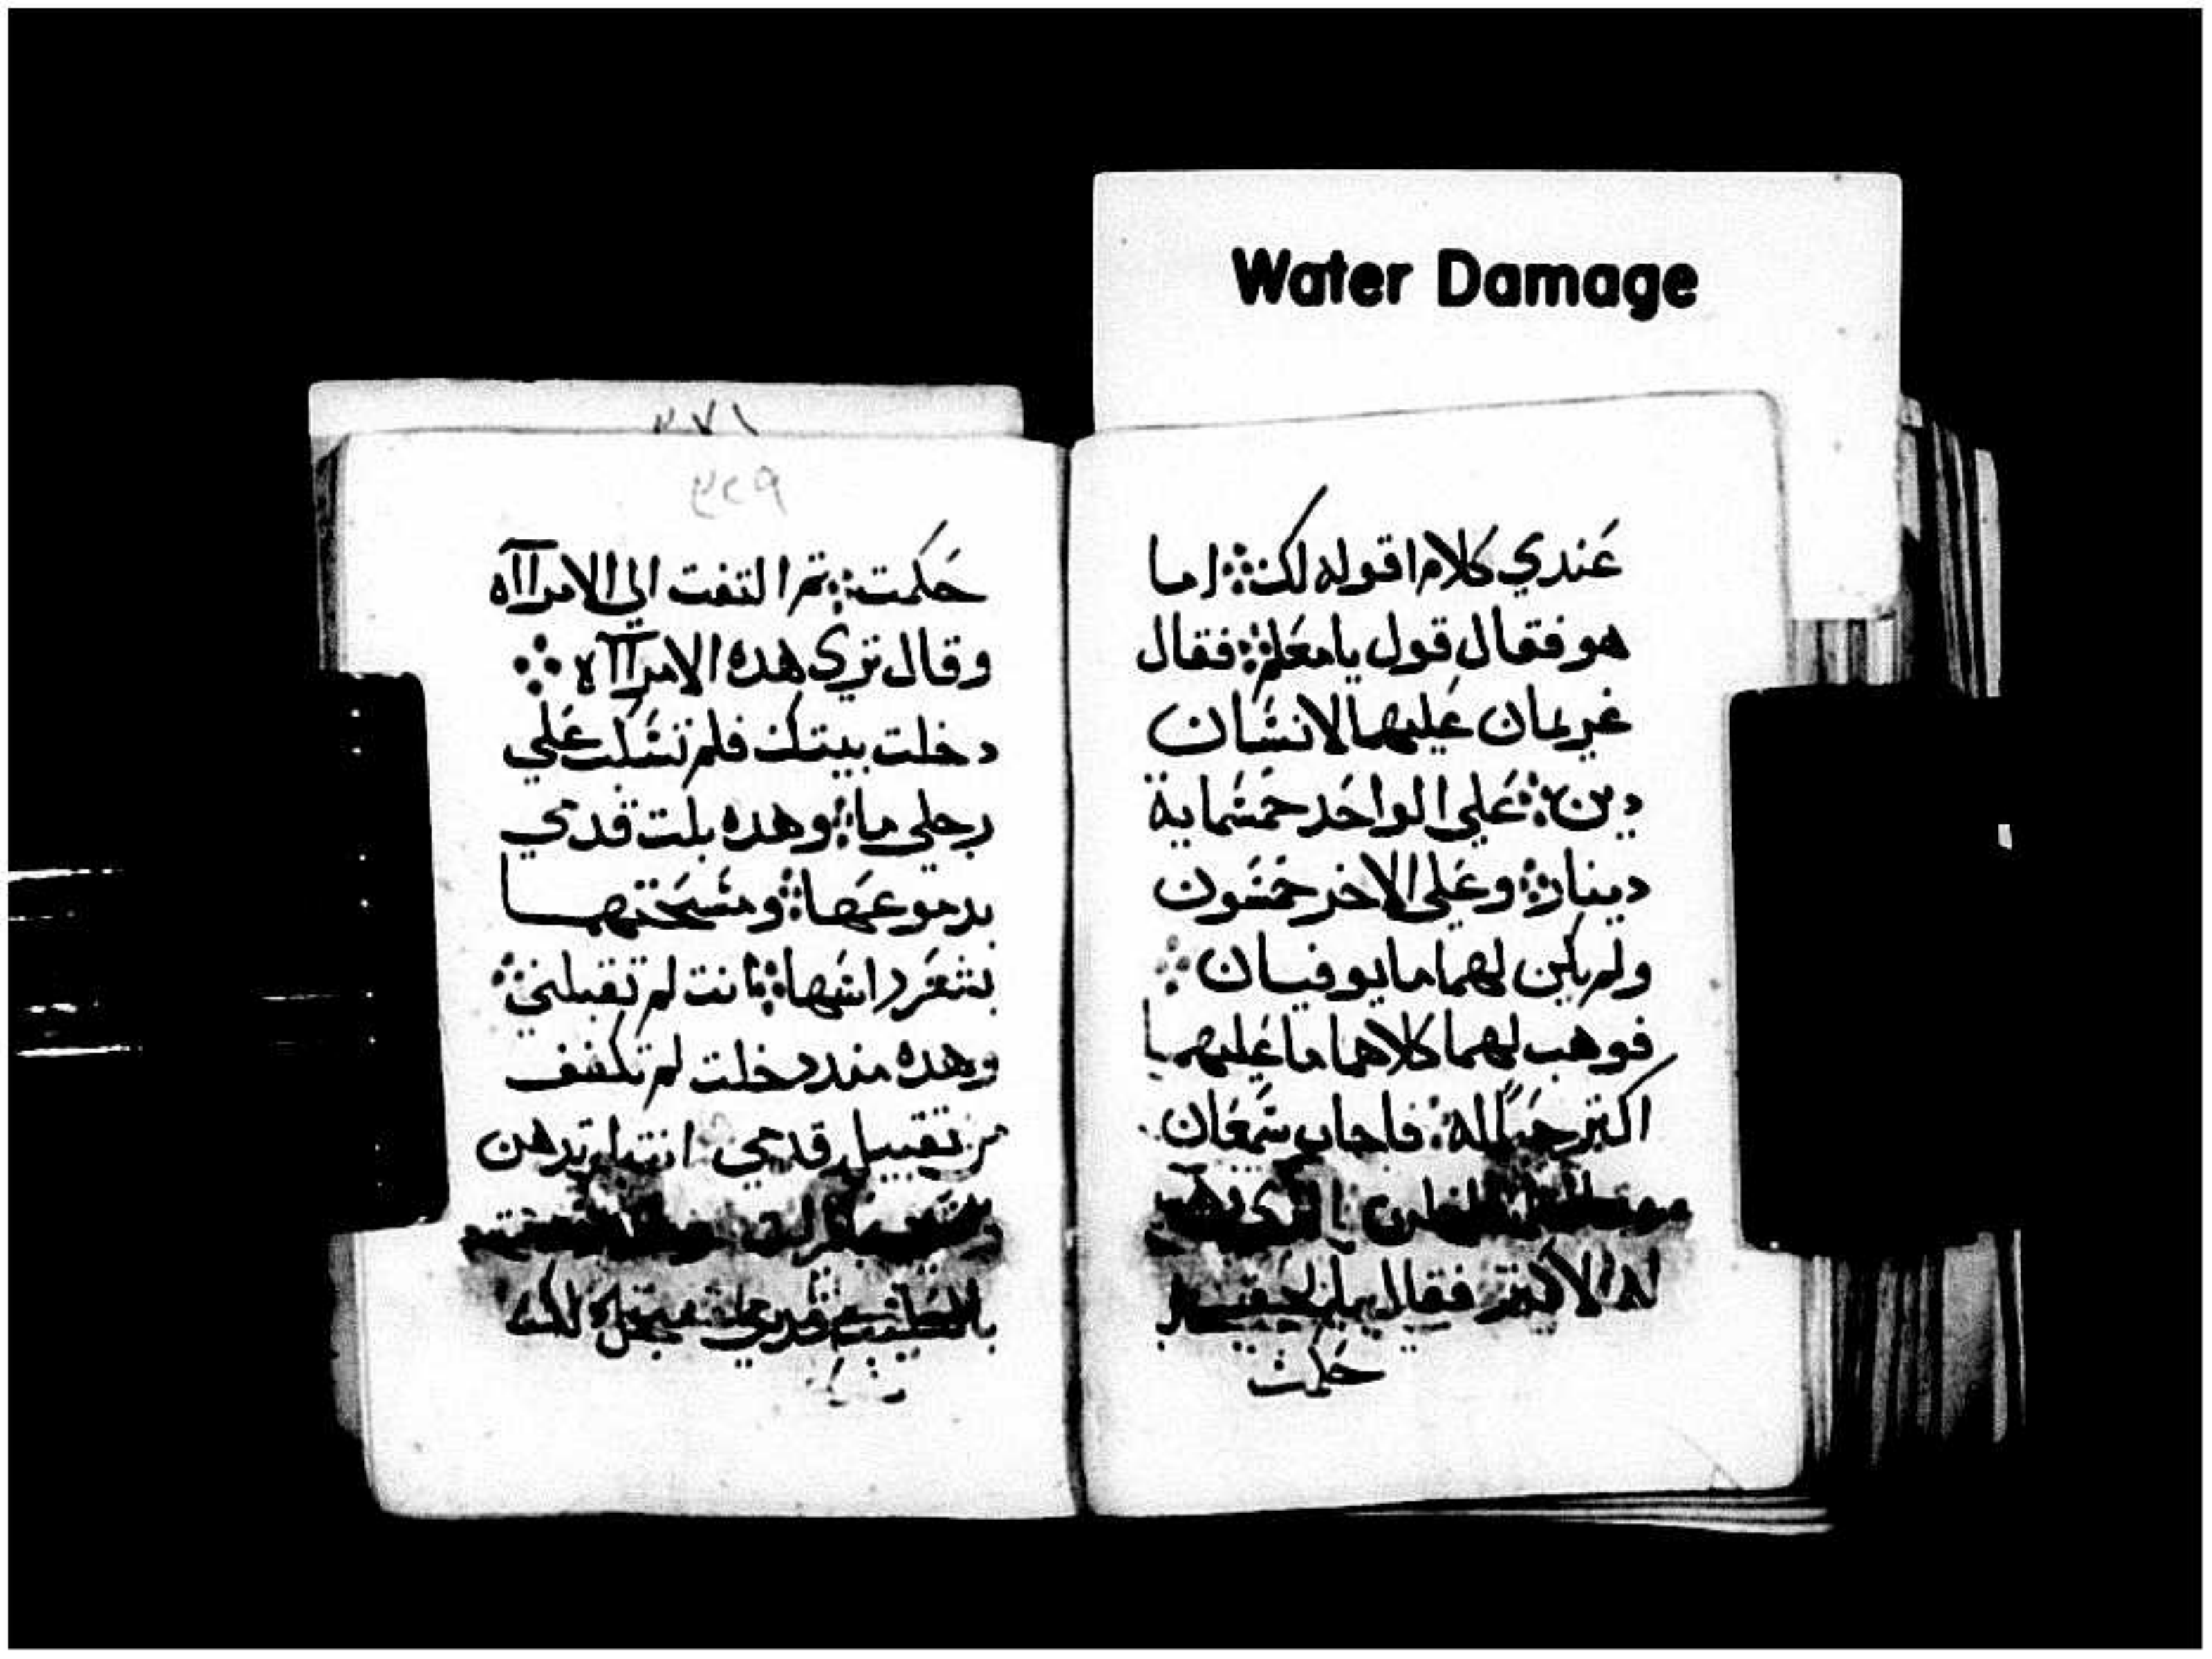 Water Damage
عندي كلام اقوله لك ܀ اما
هو فقال قول يا معلم ܀ فقال
غريمان عليهما لانسان
دين ܀ علي الواحد خمسماية
دينار ܀ وعلي الاخر خمسون
ولم يكن لهما ما يوفيان ܀
فوهب لهما كلاهما ما عليهما
اكتر حبًا له ܀ فاجاب سمعان
اظن الدي وهب
له الاكتر فقال
حكمت
٣٧١
٣٢٩
حكمت ܀ تم التفت الي الامراآه
وقال تري هده الامراآه ܀
دخلت بيتك فلم تسكب علي
رجلي ما ܀ وهده بلت قدمي
بدموعها ܀ ومسحتهما
بشعر راسها ܀ انت لم تقبلني ܀
وهده مند دخلت لم تكفف
من تقبيل قدمي انت لم تدهن
بالطيب قدمي لك